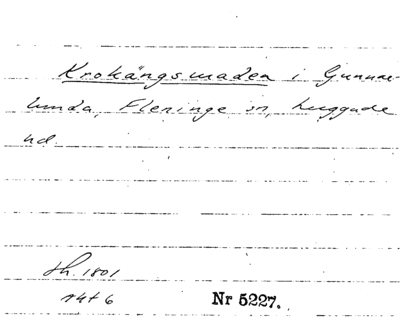 Krokängsmaden i Gunnne-
lunda, Fleninge sn, Luggude
hd.
th. 1801
nr 6
Nr 5227.